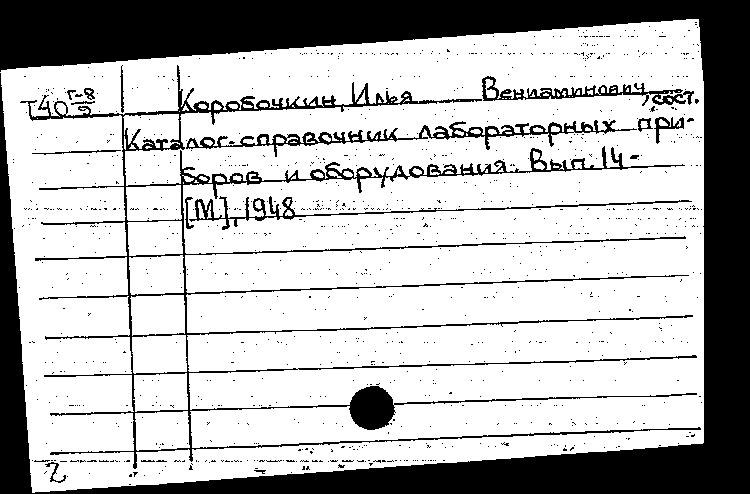 Т40 Г-8/5 Коробочкин, Илья Вениаминович, сост.
Каталог-справочник лабораторных при-
боров и оборудования. Вып. 14-
[М], 1948
2